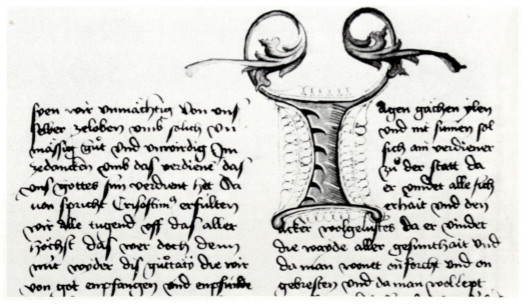 syen wir vnmächtig von vns
selber zeloben vmb solich vn
mässig gůt vnd vnwirdig Jm
zedancken vmb das verdiene das
vns gottes sun verdient het Da
von spricht Crisostimꝰ erfulten
wir alle tugend vff das aller
höchst das wer doch denn
wyder dis gůttaty die wir
von got enpfangen vnd enpfinde
I agen gachen ylen
vnd mit sinnen sol
sich ain verdiener
zů der statt da
er vindet alle sich
erhait vnd den
acker da er vindet
die waude aller gesunthait vnd
da man wonet forcht vnd on
gebresten vnd da man wol lept